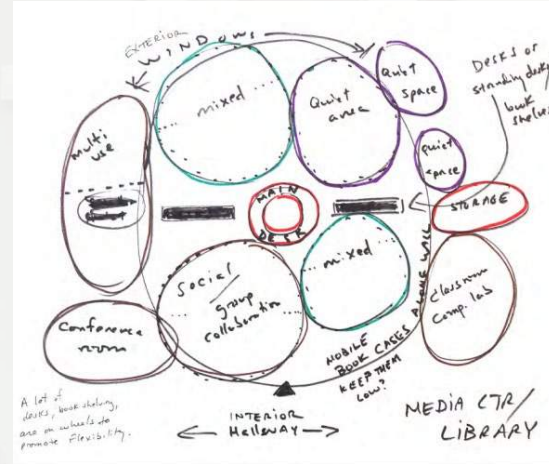 EXTERIOR
WINDOWS
mixed
Quiet
area
Quiet
space
Desks or
standing desks
book
shelves
multi
use
quiet
space
MAIN
DESK
STORAGE
mixed
Social /
group
collaboration
Classroom
Comp. lab
Conference
room
MOBILE
BOOK CASES ALONG WALL
KEEP THEM
LOW?
A lot of
desks, book shelving,
are on wheels to
promote Flexibility.
INTERIOR
HallwAY
MEDIA CTR/
LiBRARY